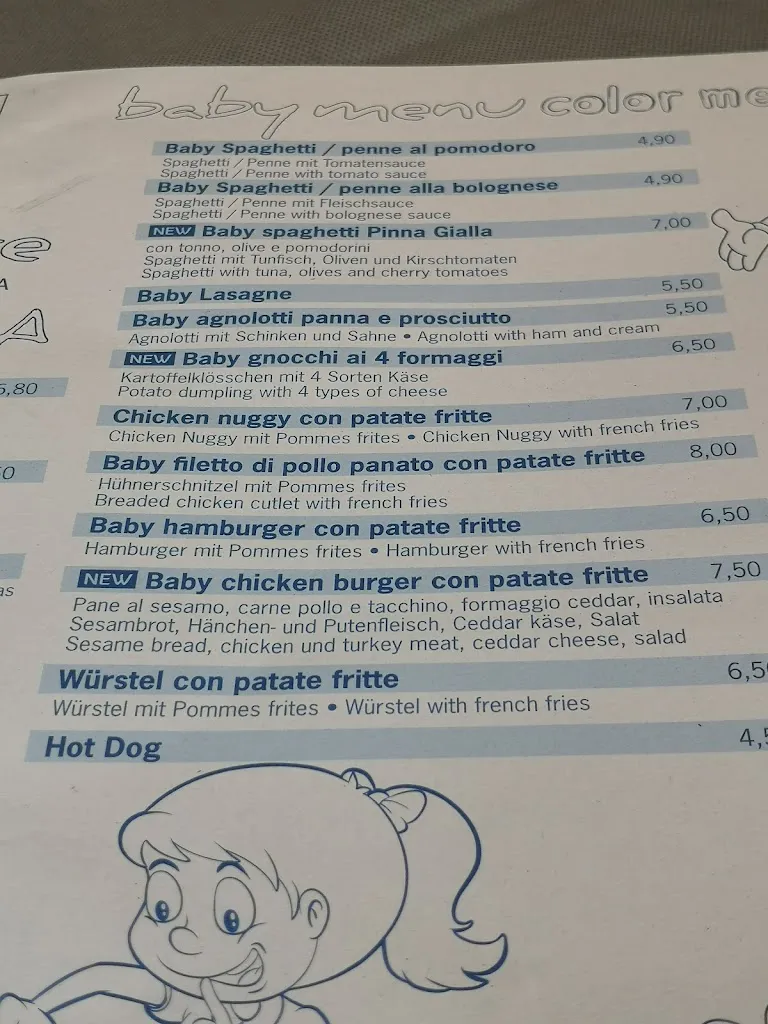 baby menu color me
Baby Spaghetti / penne al pomodoro 4,90
Spaghetti / Penne mit Tomatensauce
Spaghetti / Penne with tomato sauce
Baby Spaghetti / penne alla bolognese 4,90
Spaghetti / Penne mit Fleischsauce
Spaghetti / Penne with bolognese sauce
NEW Baby spaghetti Pinna Gialla 7,00
con tonno, olive e pomodorini
Spaghetti mit Tunfisch, Oliven und Kirschtomaten
Spaghetti with tuna, olives and cherry tomatoes
Baby Lasagne 5,50
Baby agnolotti panna e prosciutto 5,50
Agnolotti mit Schinken und Sahne • Agnolotti with ham and cream
NEW Baby gnocchi ai 4 formaggi 6,50
Kartoffelklösschen mit 4 Sorten Käse
Potato dumpling with 4 types of cheese
Chicken nuggy con patate fritte 7,00
Chicken Nuggy mit Pommes frites • Chicken Nuggy with french fries
Baby filetto di pollo panato con patate fritte 8,00
Hühnerschnitzel mit Pommes frites
Breaded chicken cutlet with french fries
Baby hamburger con patate fritte 6,50
Hamburger mit Pommes frites • Hamburger with french fries
NEW Baby chicken burger con patate fritte 7,50
Pane al sesamo, carne pollo e tacchino, formaggio ceddar, insalata
Sesambrot, Hänchen- und Putenfleisch, Ceddar käse, Salat
Sesame bread, chicken und turkey meat, ceddar cheese, salad
Würstel con patate fritte 6,5
Würstel mit Pommes frites • Würstel with french fries
Hot Dog 4,5
A
A
5,80
as